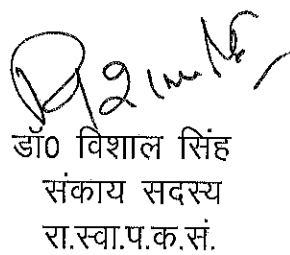 डॉ0 विशाल सिंह
संकाय सदस्य
रा.स्वा.प.क.सं.